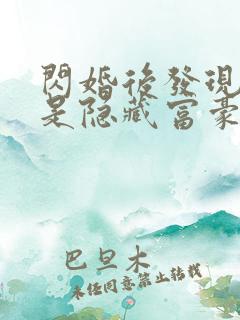 閃婚後發現
是隐藏富豪
巴旦木
未经同意禁止转载